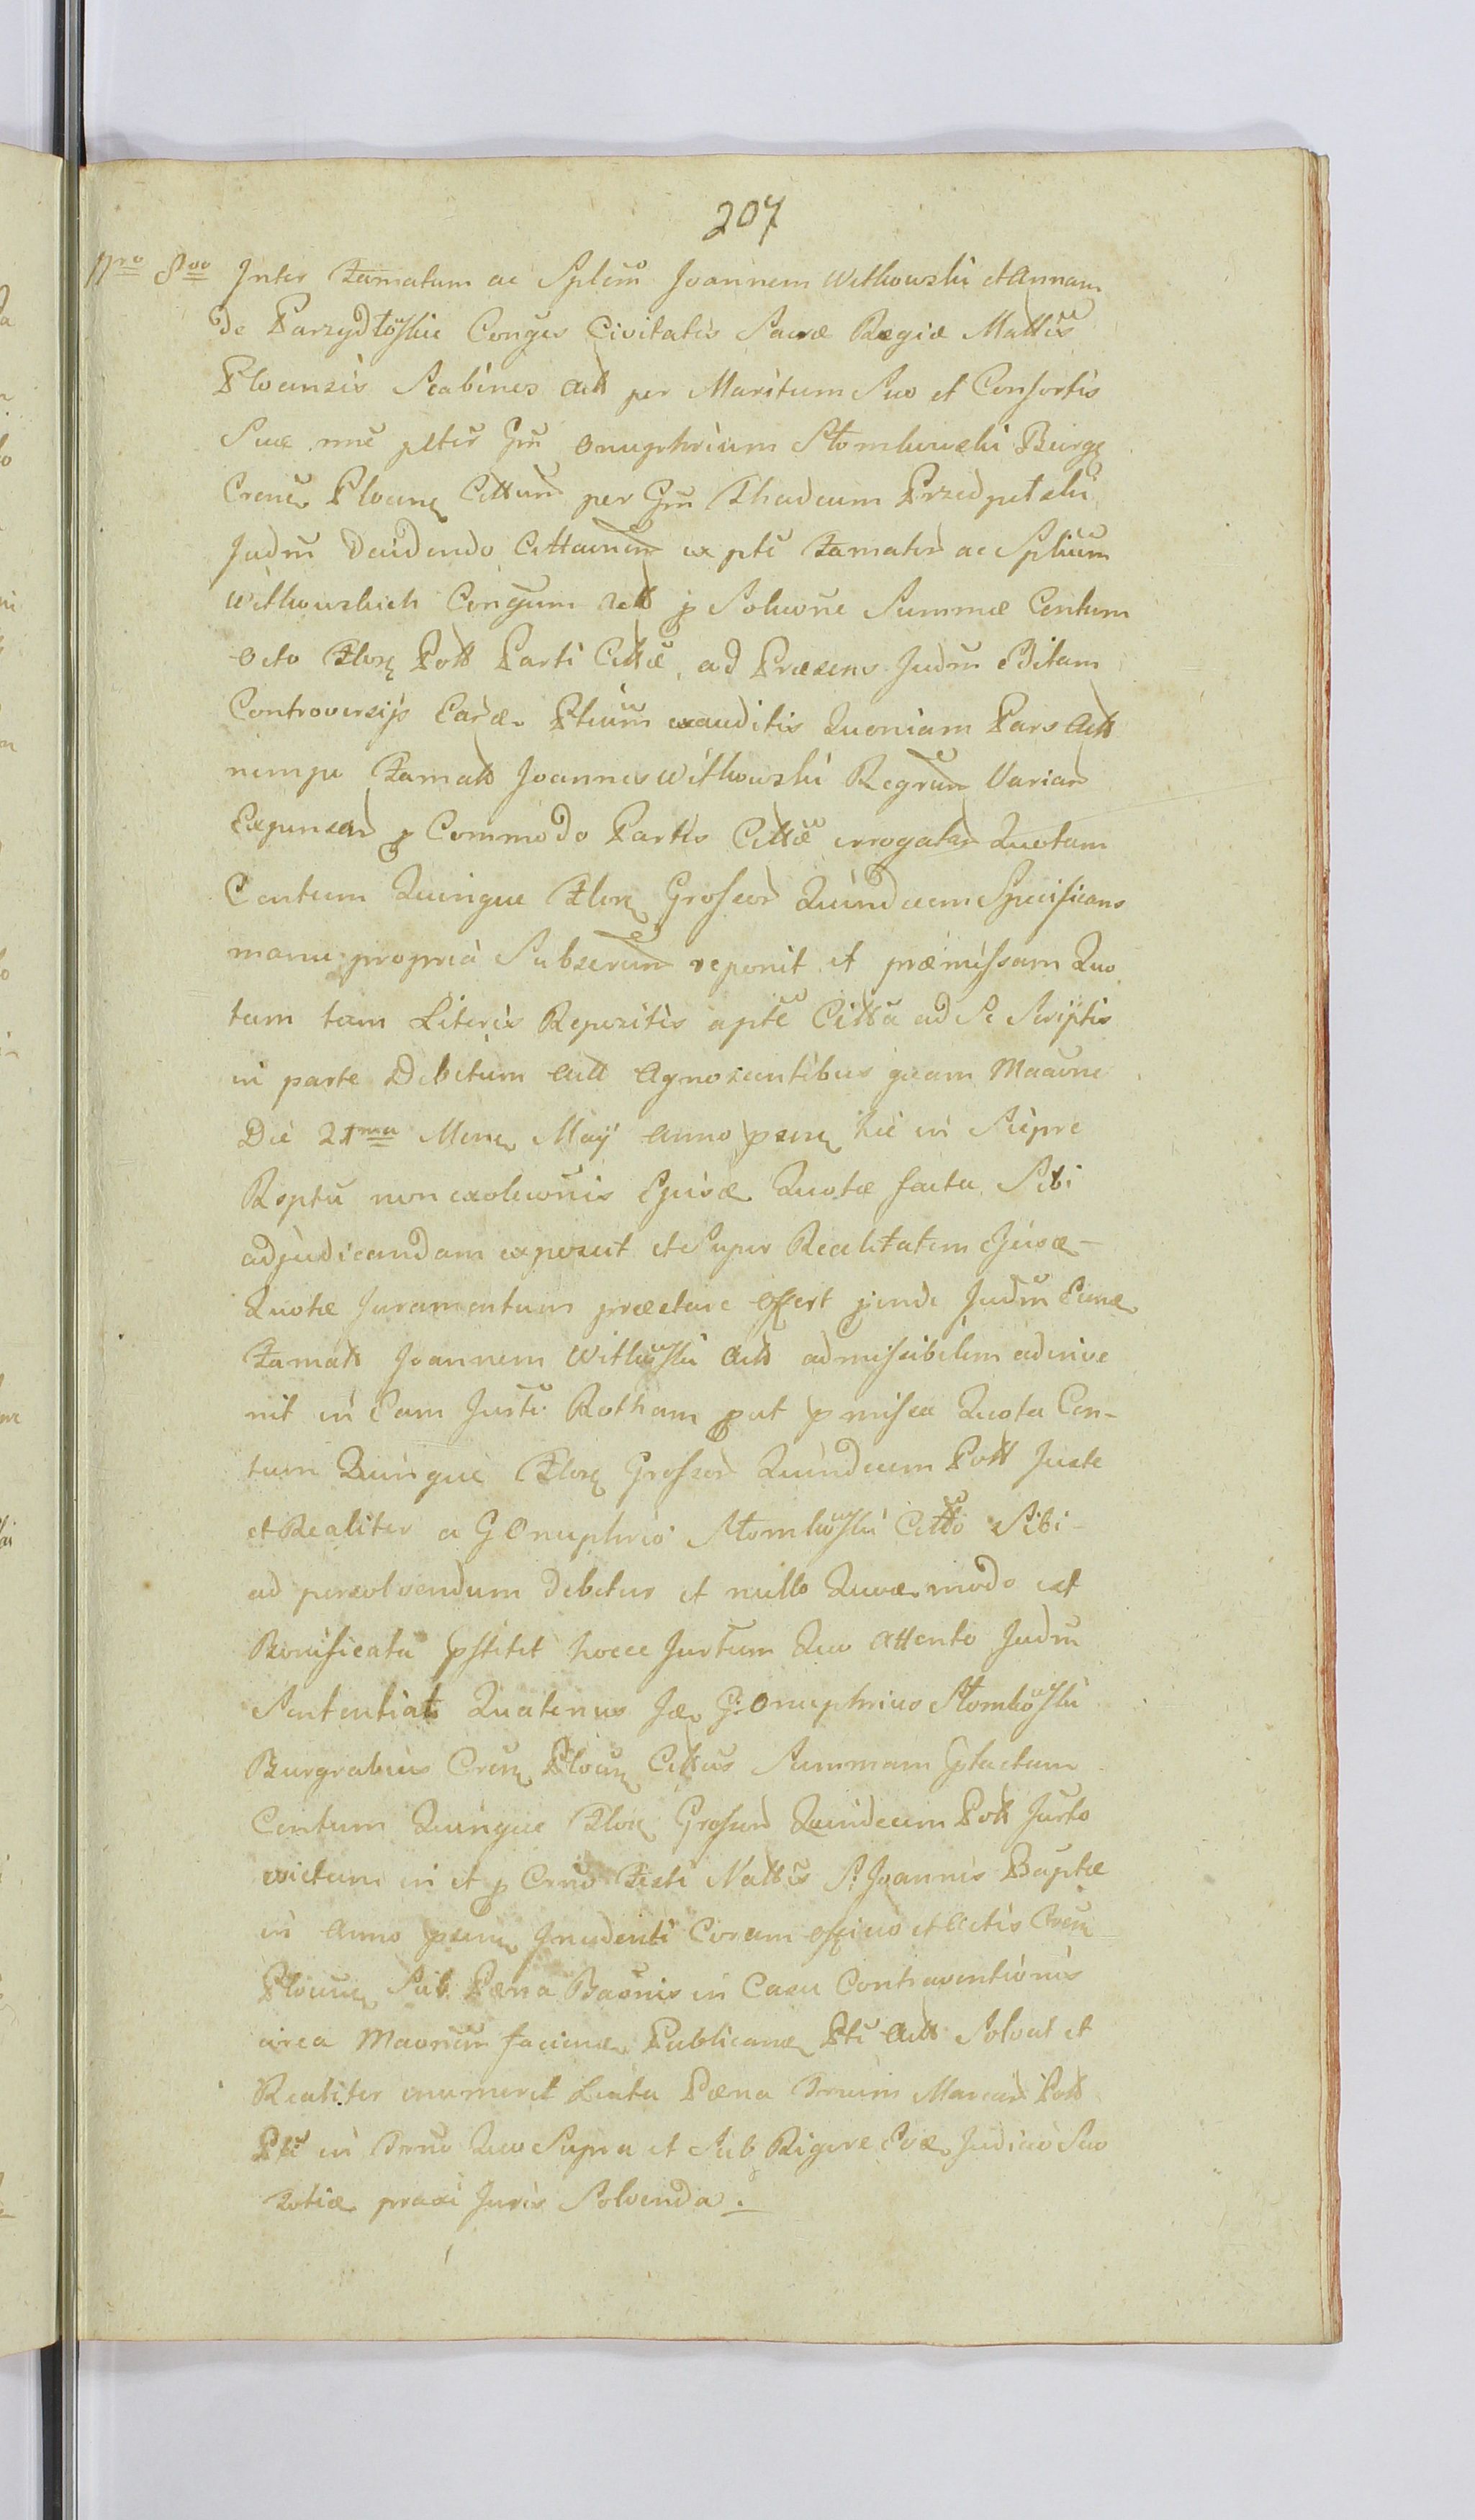 207
Nro 8vo Inter Famatum ac Splem Joannem Witkowski et Annam
de Parzydłoskie Conges Civitatis Sacræ Regiæ Mattis
Plocensis Scabinos Actt per Maritum Suo et Consortis
Suæ nne Gm Onuphrium Słomkowski Burg
Crem Plocen Cittum per Gm Thadeum Przedpełski
Judm Deudendo Cittaonem ex pte Famator ac Splium
Witkowskich Congum Actt p Soluone Summæ Centum
Octo Flor Poll Parti Cittæ, ad Præsens Judm Editam
Controversijs Earde Ptium exauditis Quoniam Pars Actt
nempe Famatt Joannes Witkowski Regrum Variar
Expensar p Commodo Partis Cittæ errogatar Quotam
Centum Quinque Flor Grossor Quindecem Specificans
manu propria Subscrum reponit et præmissam Quo
tam tam Literis Repositis apte Citta ad Se Scriptis
in parte Debitum Actt Agnoscentibus quam Maaone
Die 21ma Mens Maij Anno psen hic in
Rsptu non exoluonis Ejusde Quotæ facta Sibi
adjudicandam exposcit et Super Realitatem Ejusde
Quotæ Juramentum præstare offert pinde Judm Eunde
Famatt Joannem Witkoski Actt admissibilem adinve
nit in Eam Justi Rotham put pmissa Quota Cen-
tum Quinque Flor Grossor Quindecem Poll Juste
et Realiter a G Onuphrio Słomkoski Citto Sibi
ad persolvendum debetur et nullo Quovis modo est
Bonificata pstitit hocce Jurtum Quo Attento Judm
Sententiat Quatenus Idem G: Onuphrius Słomkoski
Burgrabius Crem Plocen Cittus Summam
Centum Quinque Flor Grossor Quindecem Poll Jurto
evictam in et p Crno Festi Nattis S: Joannis Baptæ
in Anno psen Incidenti Coram Officio et Actis Crem
Plocen Sub Pæna Baonis in Casu Contraventionis
circa Maonem faciend Publicand Pti Actt Solvat et
Realiter enumeret Lucta Pæna Trium Marcar Poll
Pti in Trno Quo Supra et Sub Rigore Eode Judicio Suo
Totide praxi Juris Solvenda.